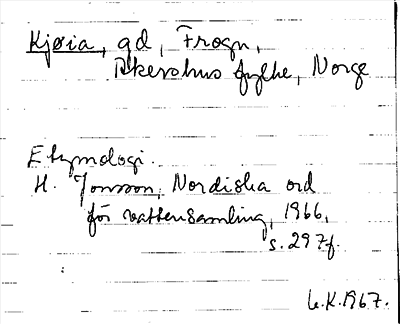 Kjøia, gd, Frogn,
Akershus fylke, Norge
Etymologi.
H. Jonsson, Nordiska ord
för vattensamling, 1966,
s. 297f.
L.K.1967.